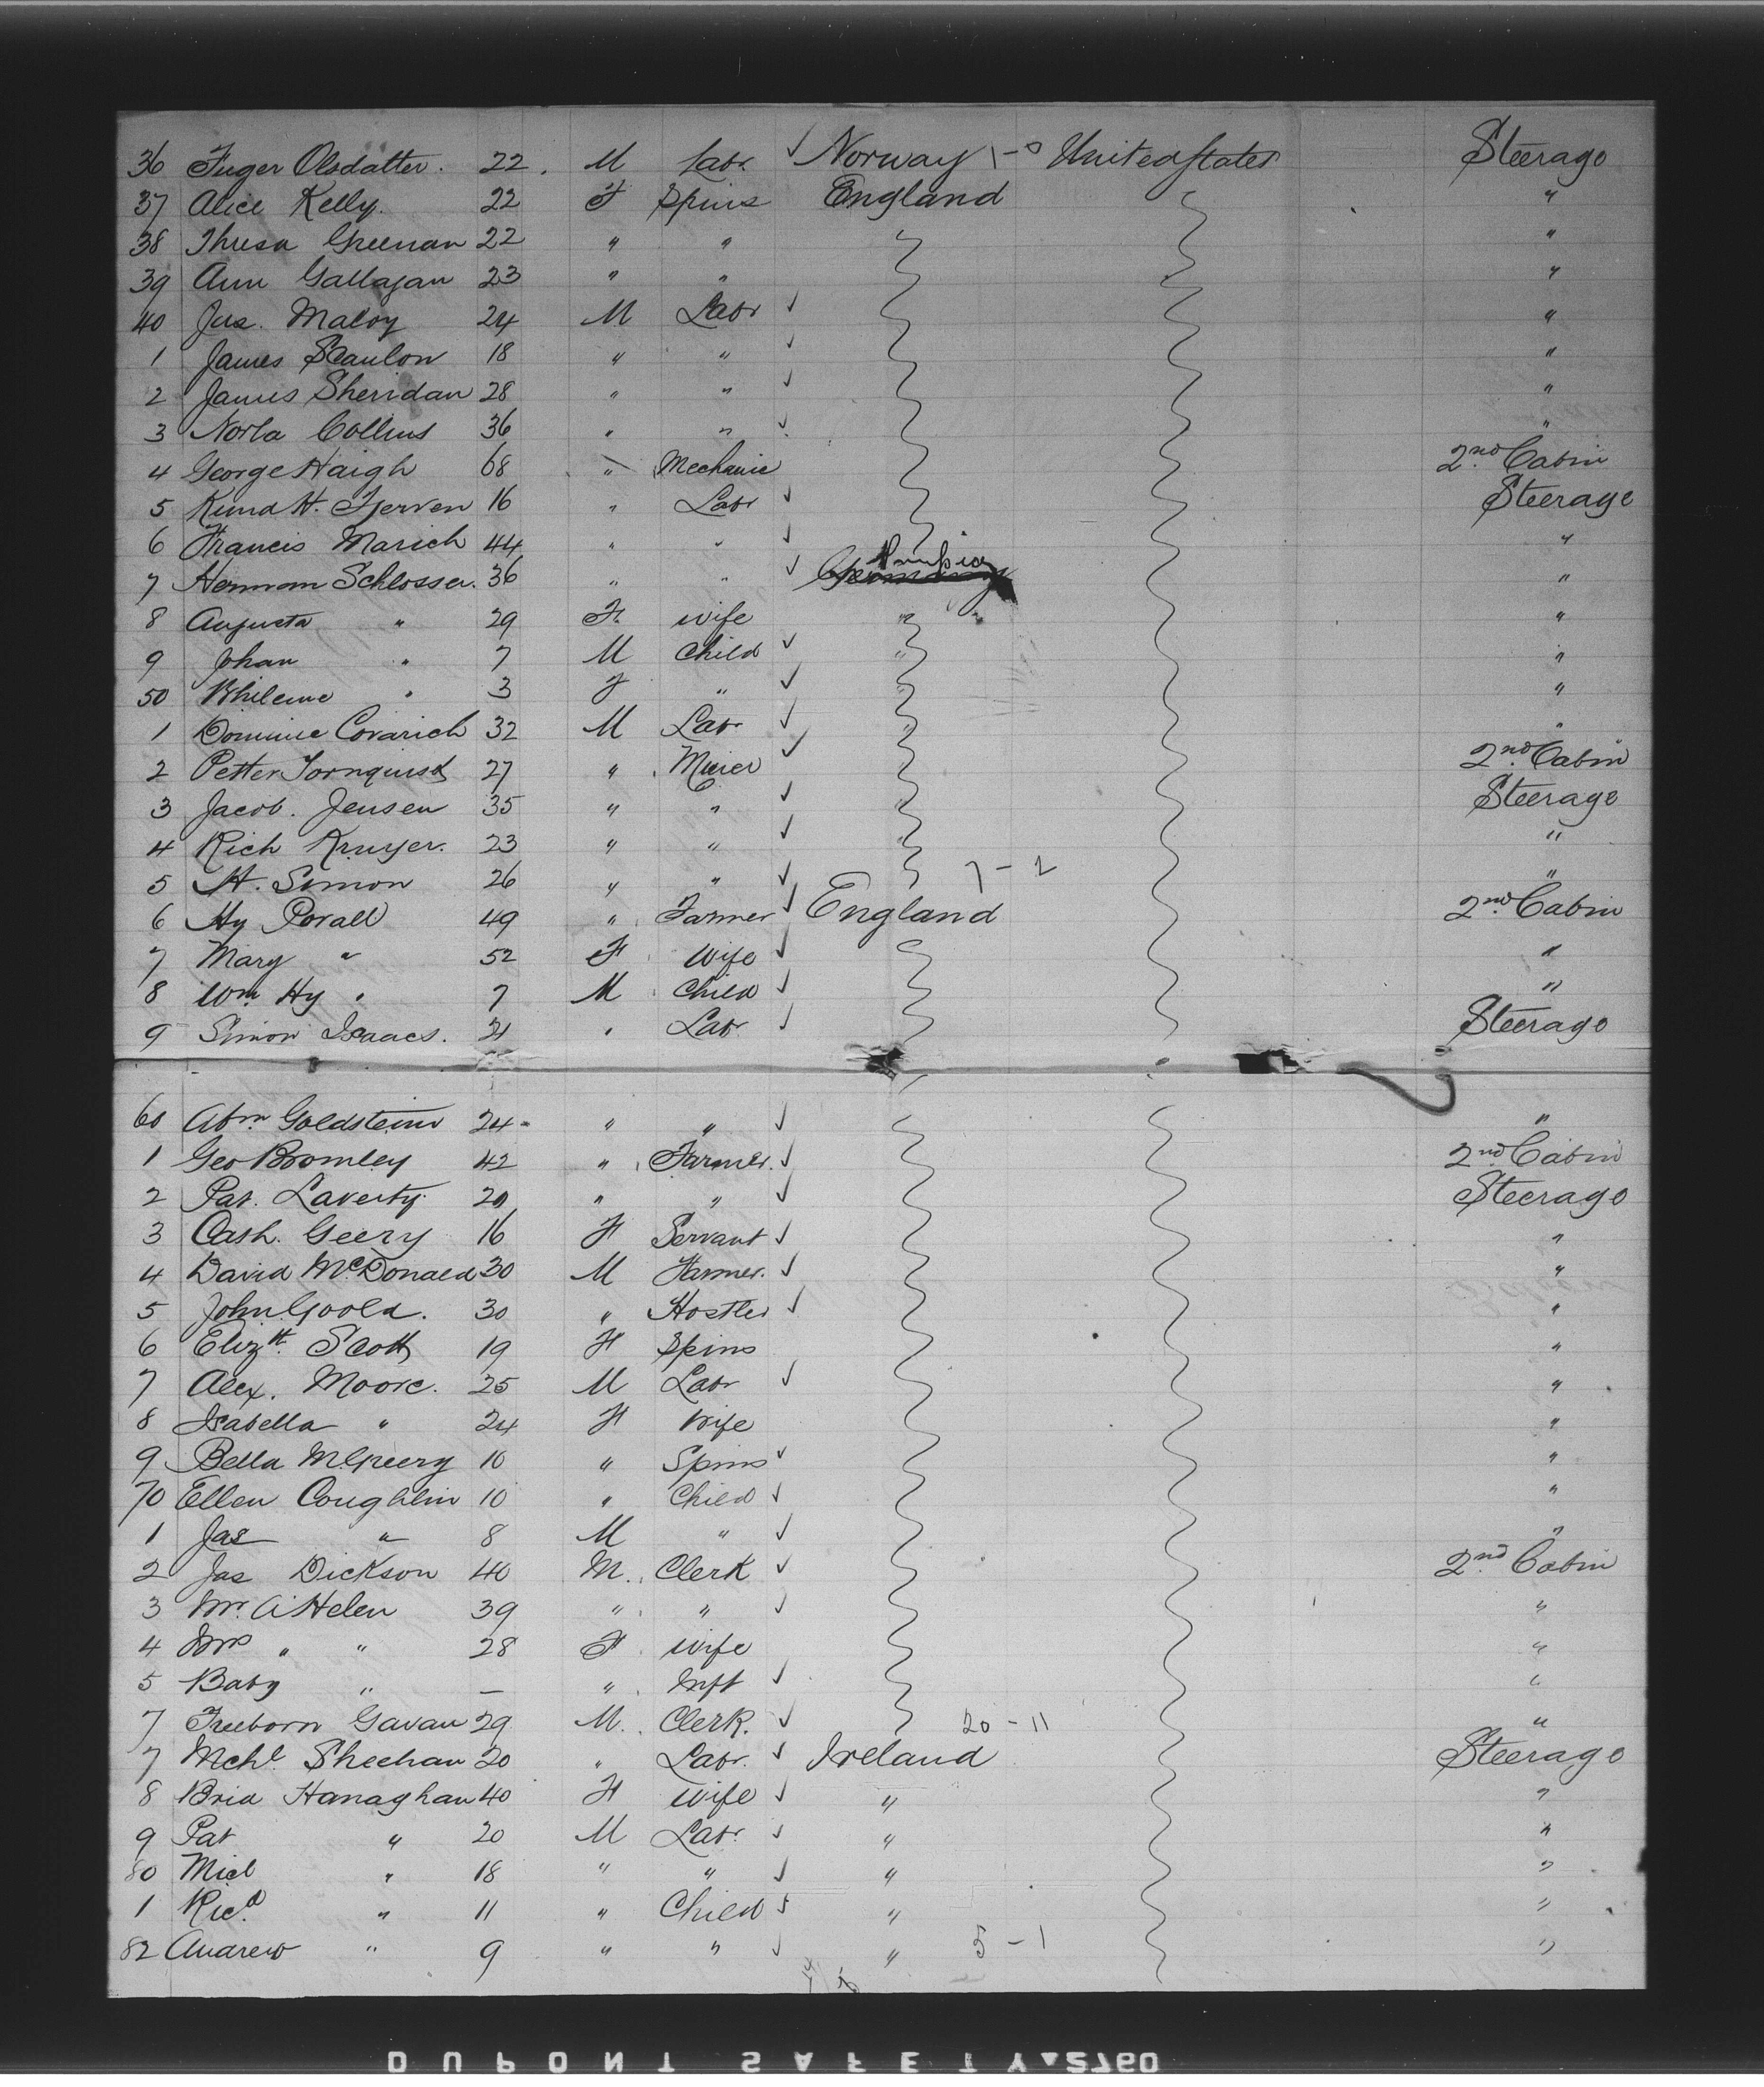 36 Inger Olsdatter. 22. M Labr. ✓ Norway 1-0 United States Steerage
37 Alice Kelly. 22 F Spins England "
38 Thresa Greenan 22 " " "
39 Ann Gallagan 23 " " "
40 Jas. Maloy 24 M Labr ✓ "
1 James Scanlon 18 " " ✓ "
2 James Sheridan 28 " " ✓ "
3 Norla Collins 36 " " ✓ "
4 George Haigh 68 " Mechanic 2nd Cabin
5 Knud H. Fjerven 16 " Labr ✓ Steerage
6 Francis Marich 44 " " ✓ "
7 Hermann Schlosser. 36 " " ✓ Germany "
8 Augusta " 29 F. wife " "
9 Johan " 7 M Child ✓ " "
50 Whileme " 3 F " ✓ " "
1 Dominic Covarich 32 M Labr ✓ " "
2 Petter Tornquist 27 " Miner ✓ 2nd Cabin
3 Jacob. Jensen 35 " " ✓ " Steerage
4 Rich Kruyer. 23 " " ✓ " "
5 H. Simon 26 " " ✓ 7-2 "
6 Hy Porall 49 " Farmer ✓ England 2nd Cabin
7 Mary " 52 F Wife ✓ "
8 Wm Hy " 7 M Child ✓ "
9 Simon Isaacs. 21 " Labr ✓ Steerage
60 Abm Goldstein 24 " " ✓ "
1 Geo Bromley 42 " Farmer. ✓ 2nd Cabin
2 Pat. Laverty. 20 " " ✓ Steerage
3 Cath. Geery 16 F Servant ✓ "
4 David McDonald 30 M Farmer. ✓ "
5 John Goold. 30 " Hostler ✓ "
6 Elizth. Scott 19 F Spins "
7 Alex. Moore. 25 M Labr ✓ "
8 Isabella " 24 F Wife "
9 Bella McGreery 10 " Spins ✓ "
70 Ellen Coughlin 10 " Child ✓ "
1 Jas " 8 M " ✓ "
2 Jas Dickson 40 M. Clerk ✓ 2nd Cabin
3 Mr. A Helen 39 " " ✓ "
4 Mrs " " 28 F Wife "
5 Baby " — " Inft ✓ "
7 Freeborn Gavan 29 M. Clerk. ✓ 20-11 "
7 Mchl Sheehan 20 " Labr. ✓ Ireland Steerage
8 Brid Hanaghan 40 F Wife ✓ " "
9 Pat " 20 M Labr. ✓ " "
80 Micl " 18 " " ✓ " "
1 Ricd " 11 " Child ✓ " "
82 Andrew " 9 " " ✓ " 5-1 "
DUPONT SAFETY 2760